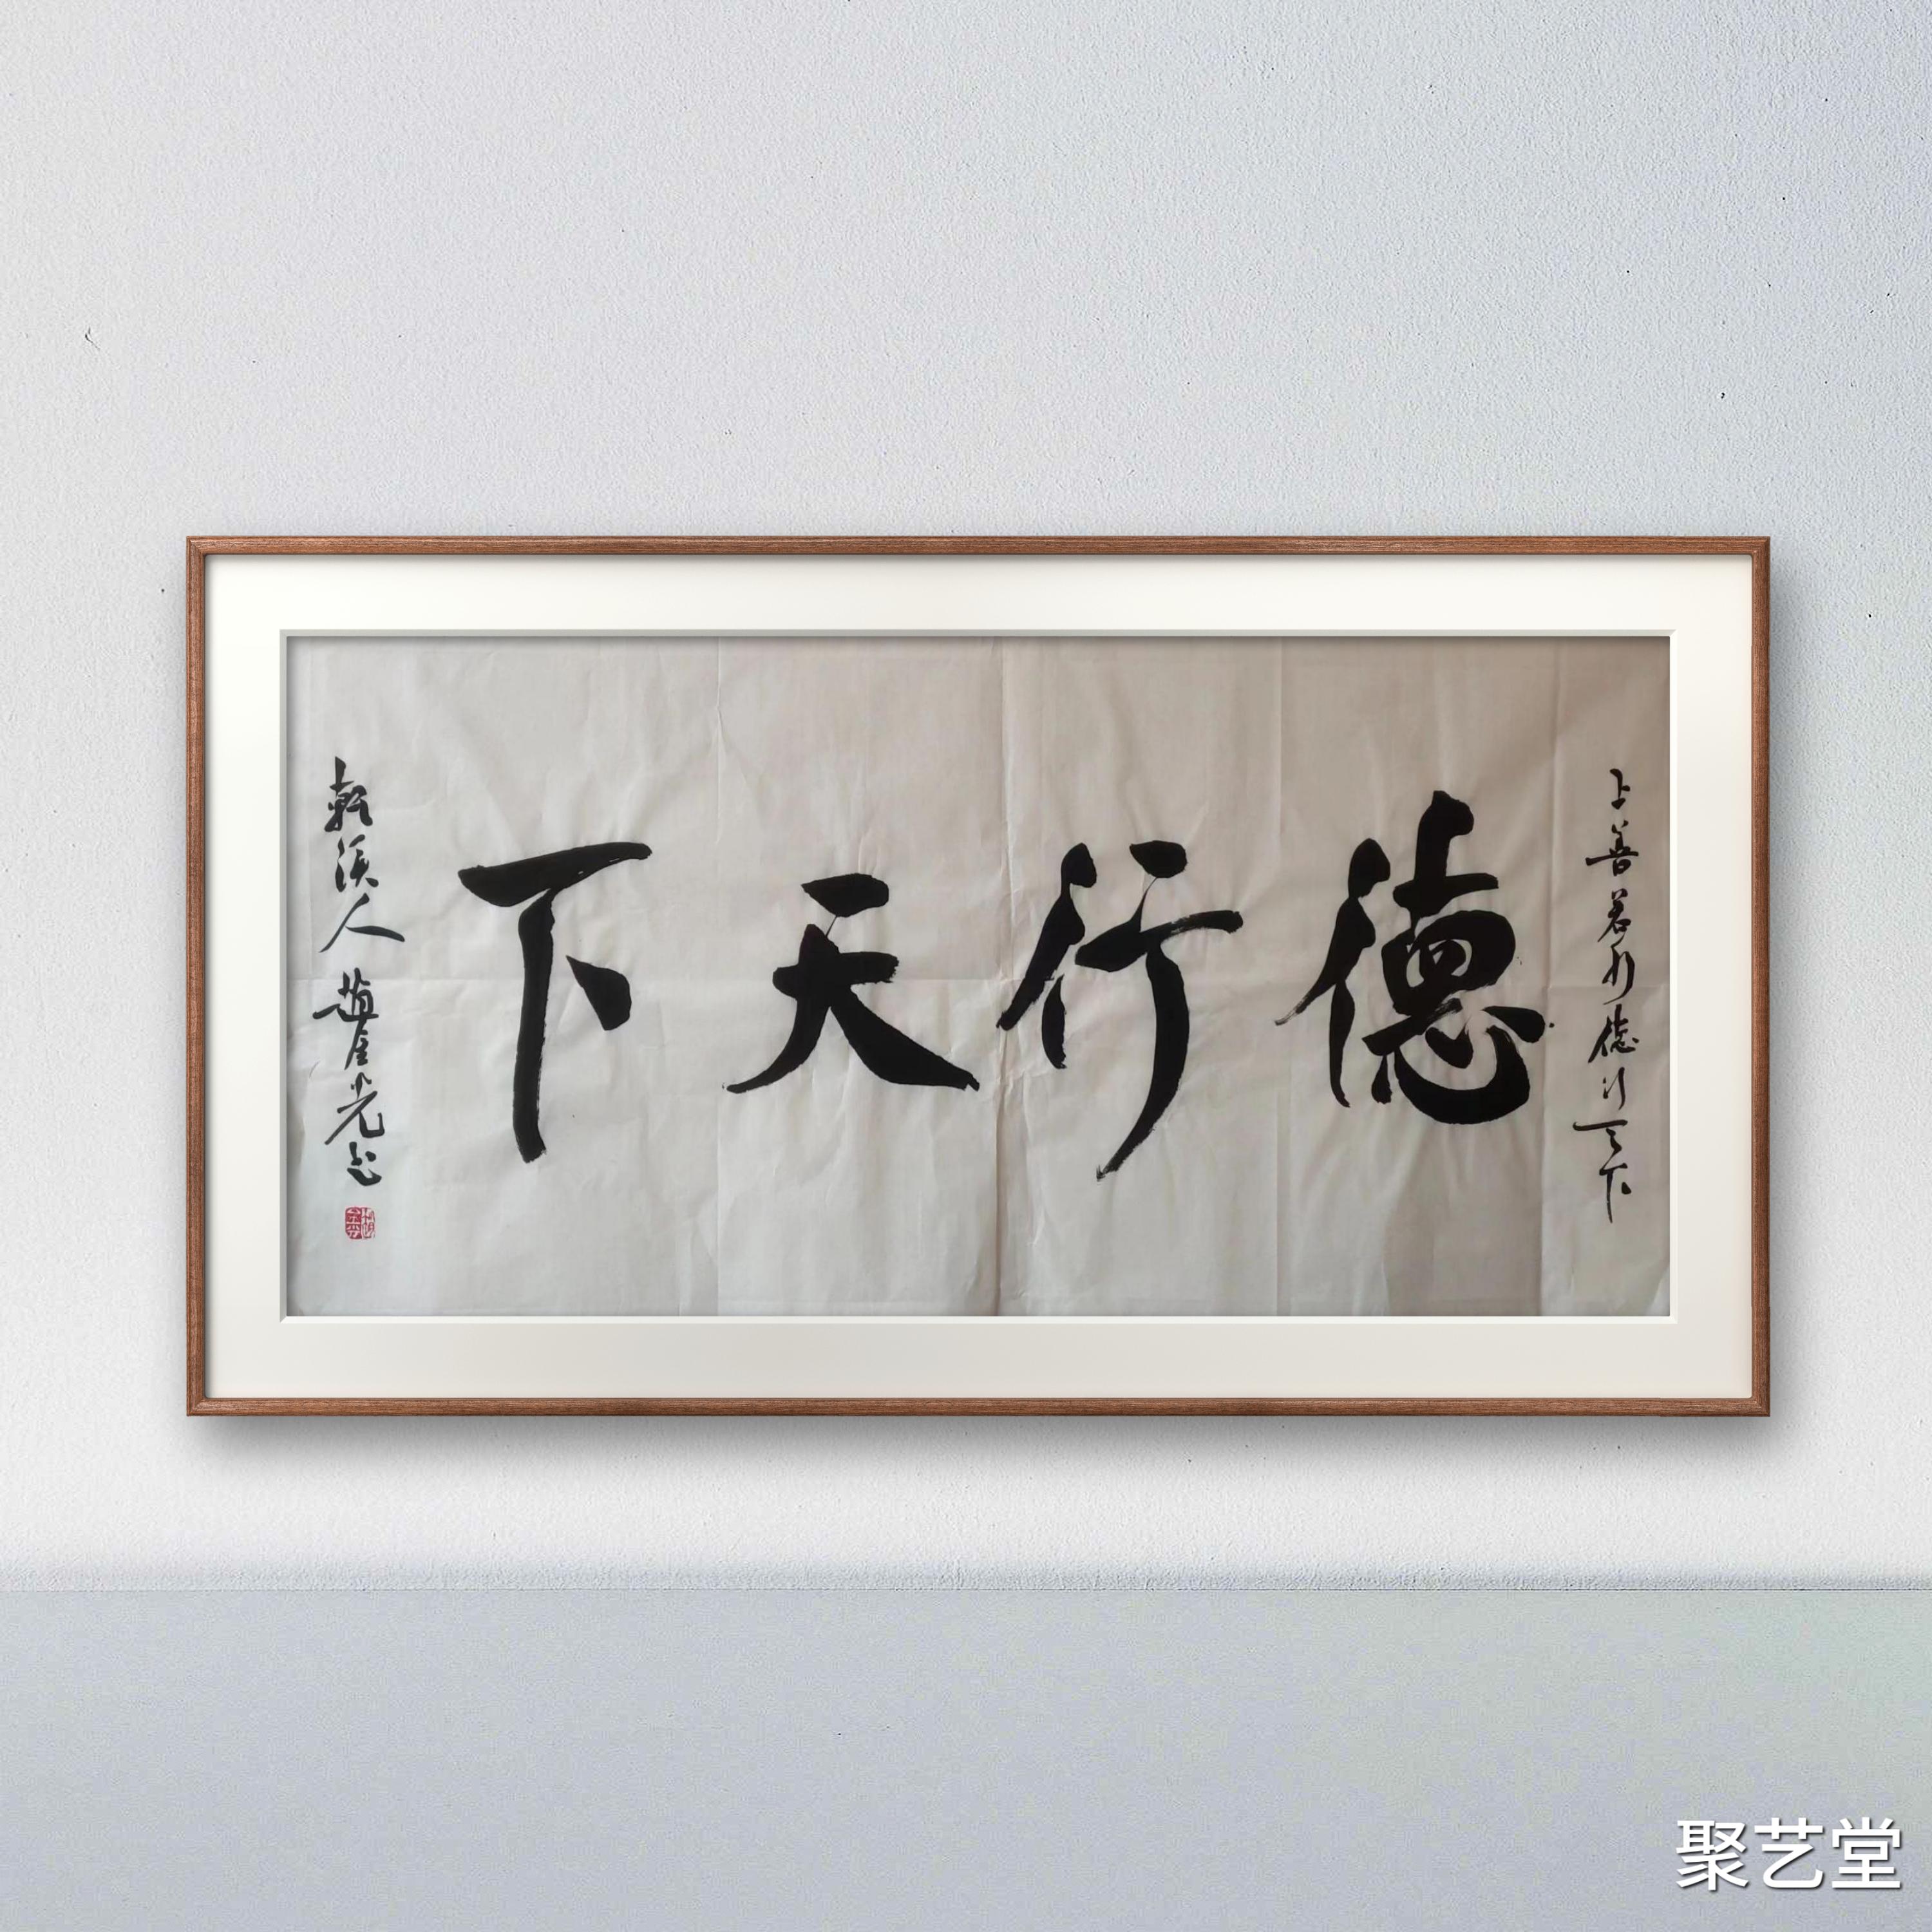 上善若水德行天下
德行天下
人趙金光書
聚艺堂